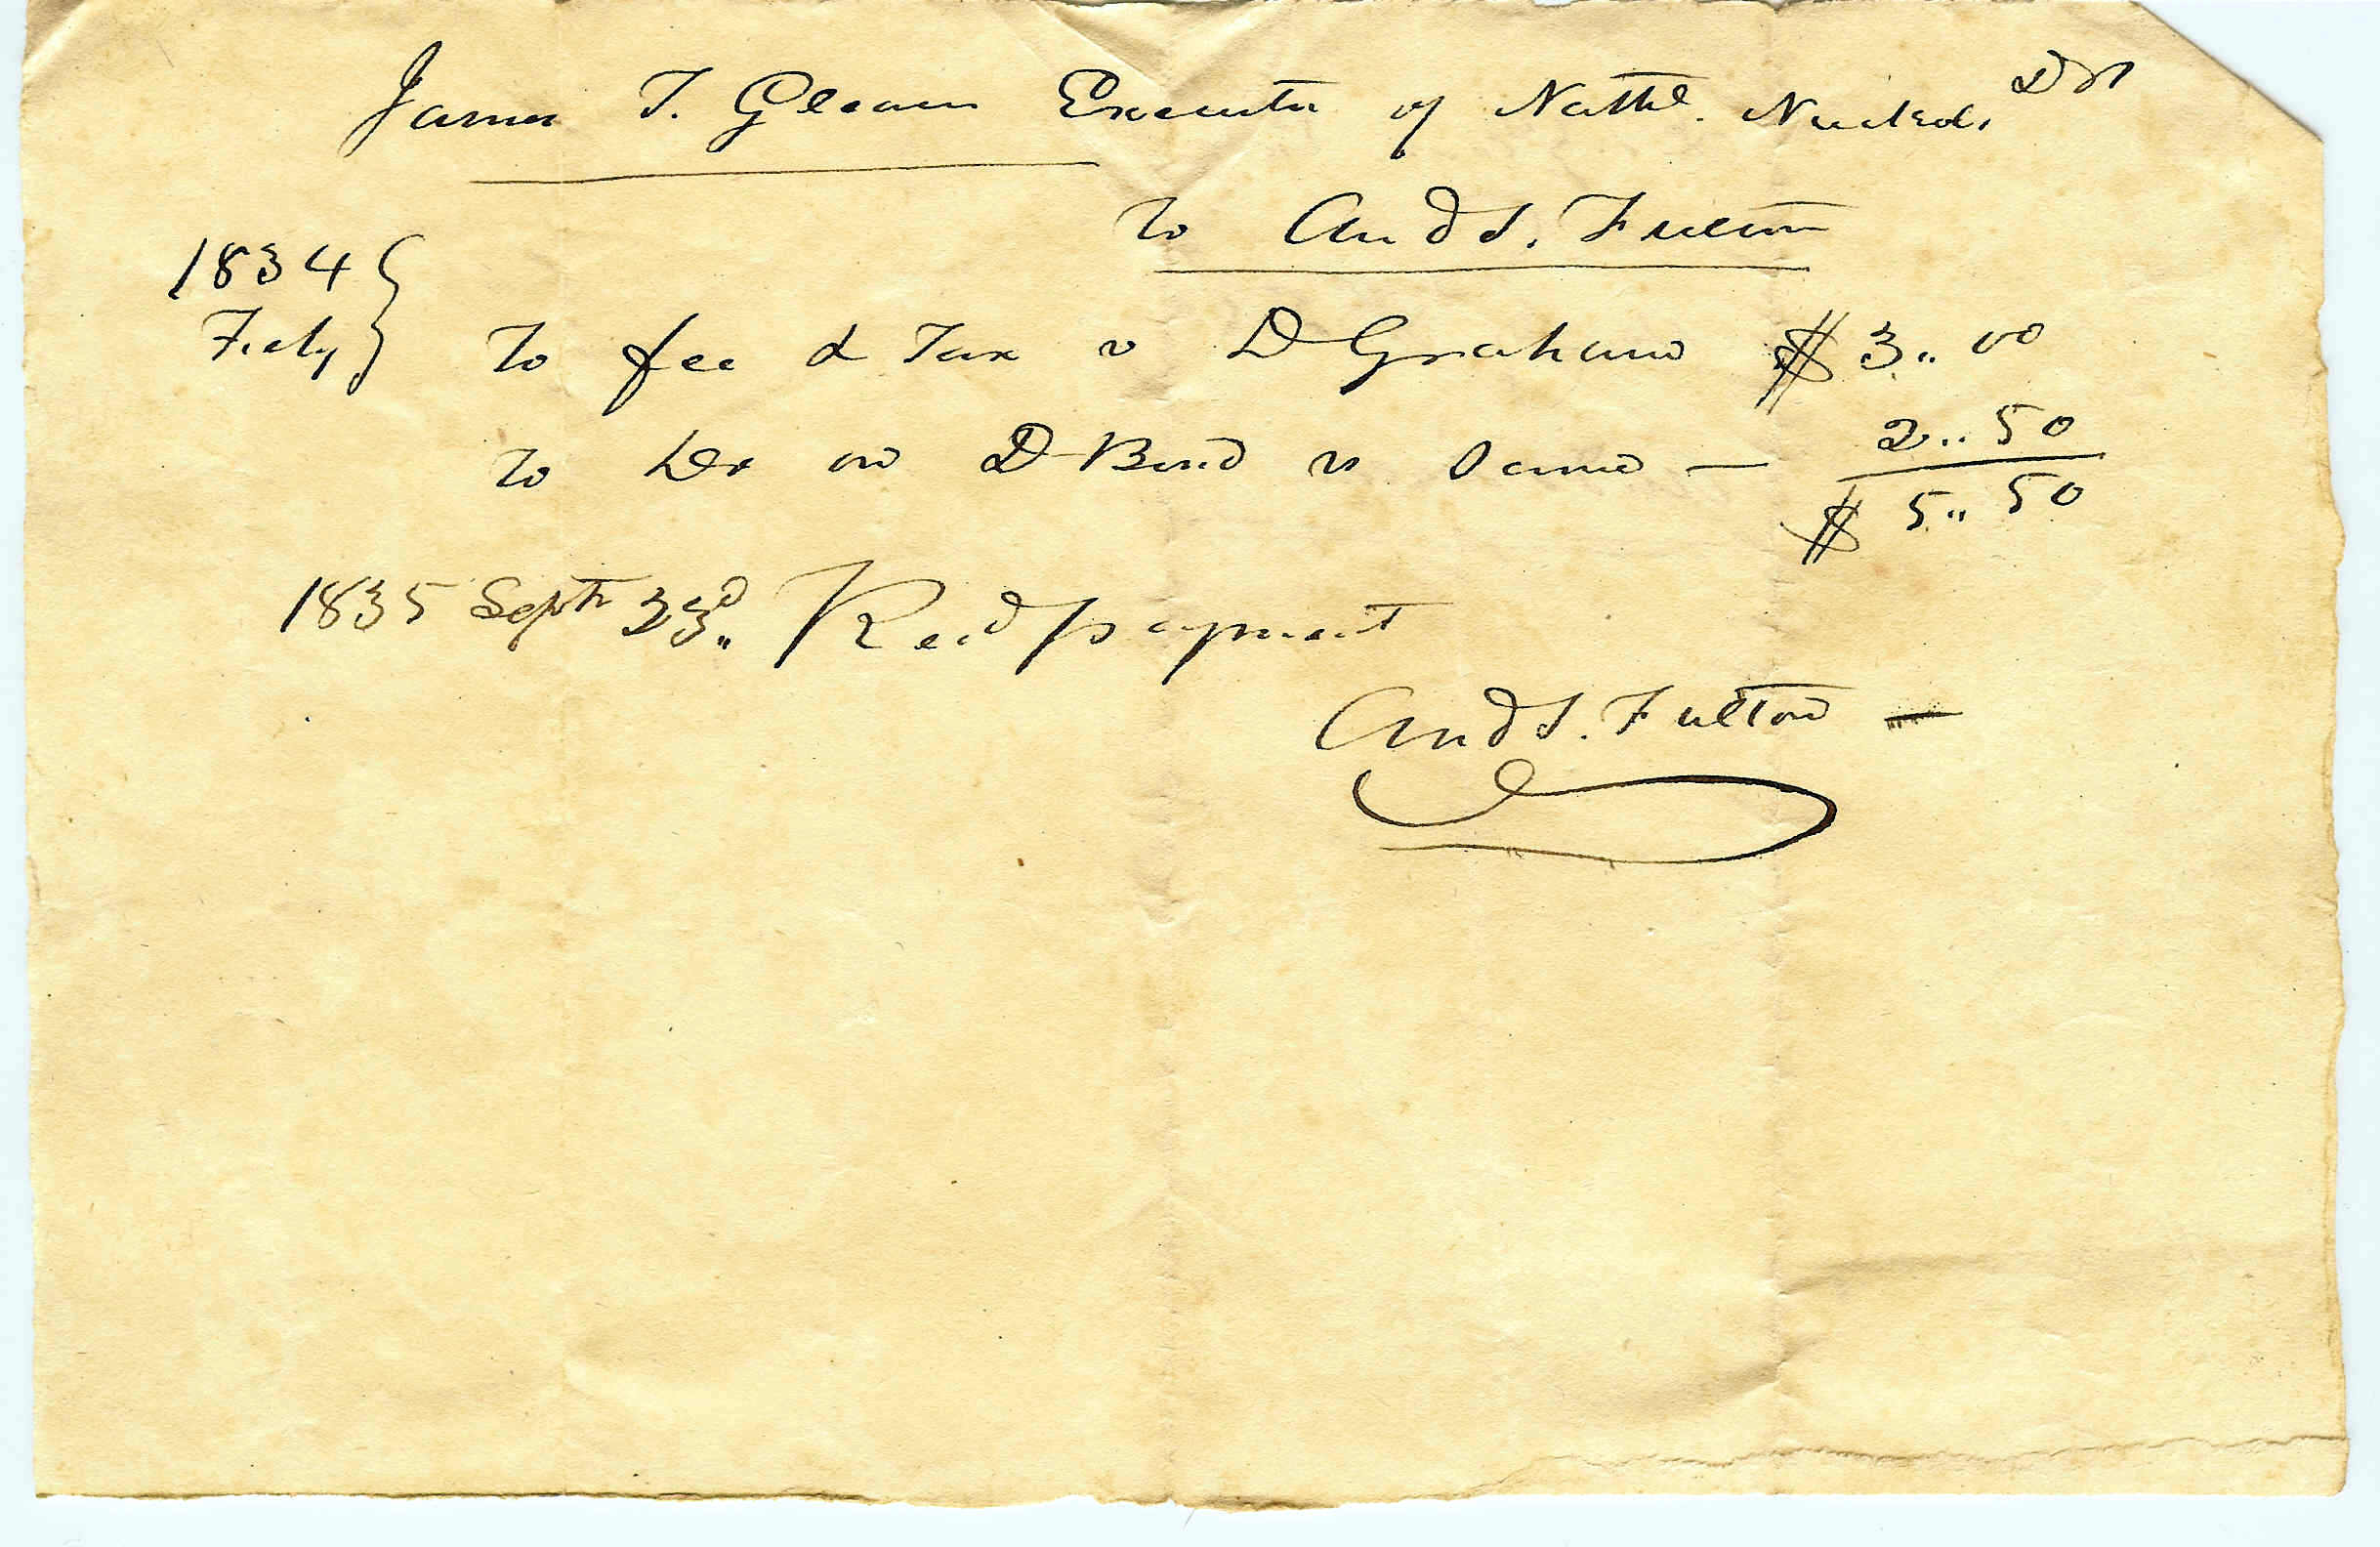 James T. Gleaves Executor of Nathl. Nuckols Dr
To And S. Fulton
1834
Feby To fee & Tax v D Graham $ 3.. 00
To Do on D Bond vs Same — 2.. 50
$ 5.. 50
1835 Septr 23d.. Recd payment
And S. Fulton —